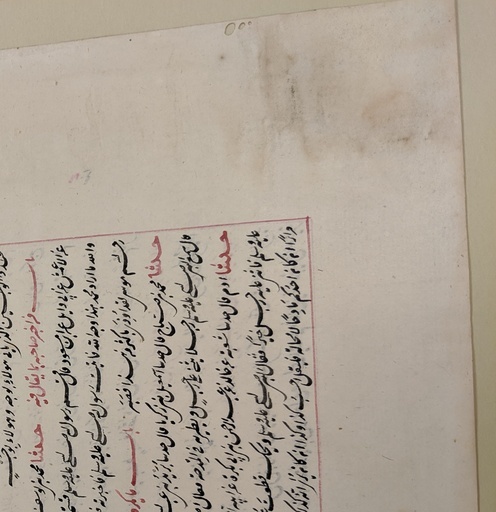 الذى ياتى هولاء بوجه وهولاء بوجه
باب من اخبر صاحبه بما يقال فيه حدثنا محمد بن يوسف
عن الاعمش عن ابى وايل عن ابن مسعود قال قسم رسول الله صلى الله عليه وسلم قسمة
والله ما اراد محمد بهذا وجه الله فاتيت رسول الله صلى الله عليه وسلم فاخبرته
رحم الله موسى لقد اوذى باكثر من هذا فصبر باب ما يكره
حدثنا محمد بن صباح قال حدثنا اسمعيل بن زكريا قال حدثنا بريد بن عبد
قال سمع النبى صلى الله عليه وسلم رجلا يثنى على رجل ويطريه فى المدحة فقال
حدثنا ادم قال حدثنا شعبة عن خالد عن عبد الرحمن بن ابى بكرة عن ابيه
عليه وسلم فاثنى عليه رجل خيرا فقال النبى صلى الله عليه وسلم ويحك قطعت
مرارا ان كان احدكم مادحا لا محالة فليقل احسب كذا وكذا ان كان يرى انه كذلك